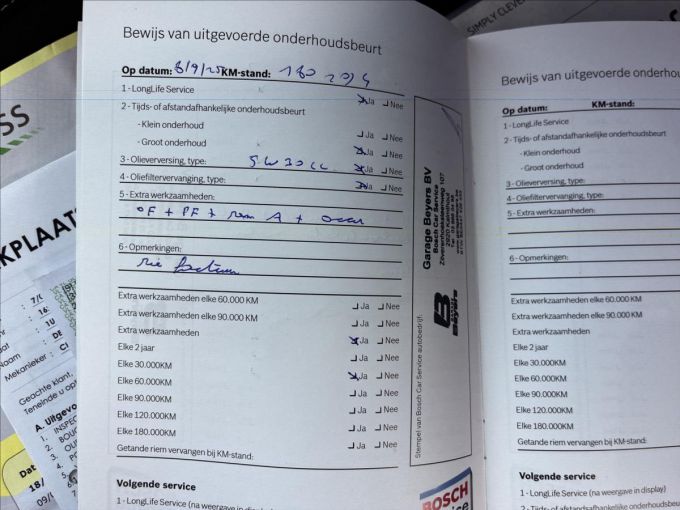 SIMPLY CLEVER
Bewijs van uitgevoerde onderhoudsbeurt
Op datum: 8/9/25 KM-stand: 180 204
1 - LongLife Service Ja Nee
2 - Tijds- of afstandafhankelijke onderhoudsbeurt
- Klein onderhoud Ja Nee
- Groot onderhoud Ja Nee
3 - Olieverversing, type: 5W30 LL Ja Nee
4 - Oliefiltervervanging, type: Ja Nee
5 - Extra werkzaamheden:
OF + PF + rem A +
6 - Opmerkingen:
zie factuur
Extra werkzaamheden elke 60.000 KM Ja Nee
Extra werkzaamheden elke 90.000 KM Ja Nee
Extra werkzaamheden
Elke 2 jaar Ja Nee
Elke 30.000KM Ja Nee
Elke 60.000KM Ja Nee
Elke 90.000KM Ja Nee
Elke 120.000KM Ja Nee
Elke 180.000KM Ja Nee
Getande riem vervangen bij KM-stand: Ja Nee
Volgende service
1 - LongLife Service (na weergave in display)
Stempel van Bosch Car Service autobedrijf.
Garage Beyers BV
Bosch Car Service
B
Beyers
BOSCH
Bewijs van uitgevoerde onderhou
Op datum: KM-stand:
1 - LongLife Service
2 - Tijds- of afstandafhankelijke onderhoudsbeurt
- Klein onderhoud
- Groot onderhoud
3 - Olieverversing, type:
4 - Oliefiltervervanging, type:
5 - Extra werkzaamheden:
6 - Opmerkingen:
Extra werkzaamheden elke 60.000 KM
Extra werkzaamheden elke 90.000 KM
Extra werkzaamheden
Elke 2 jaar
Elke 30.000KM
Elke 60.000KM
Elke 90.000KM
Elke 120.000KM
Elke 180.000KM
Getande riem vervangen bij KM-stand:
Volgende service
1 - LongLife Service (na weergave in display)
SS
KPLAATS
Naam
Mekanieker :
Geachte klant,
Teneinde u op
A. Uitgevo
1. INSPEC
Dat
18/
09/